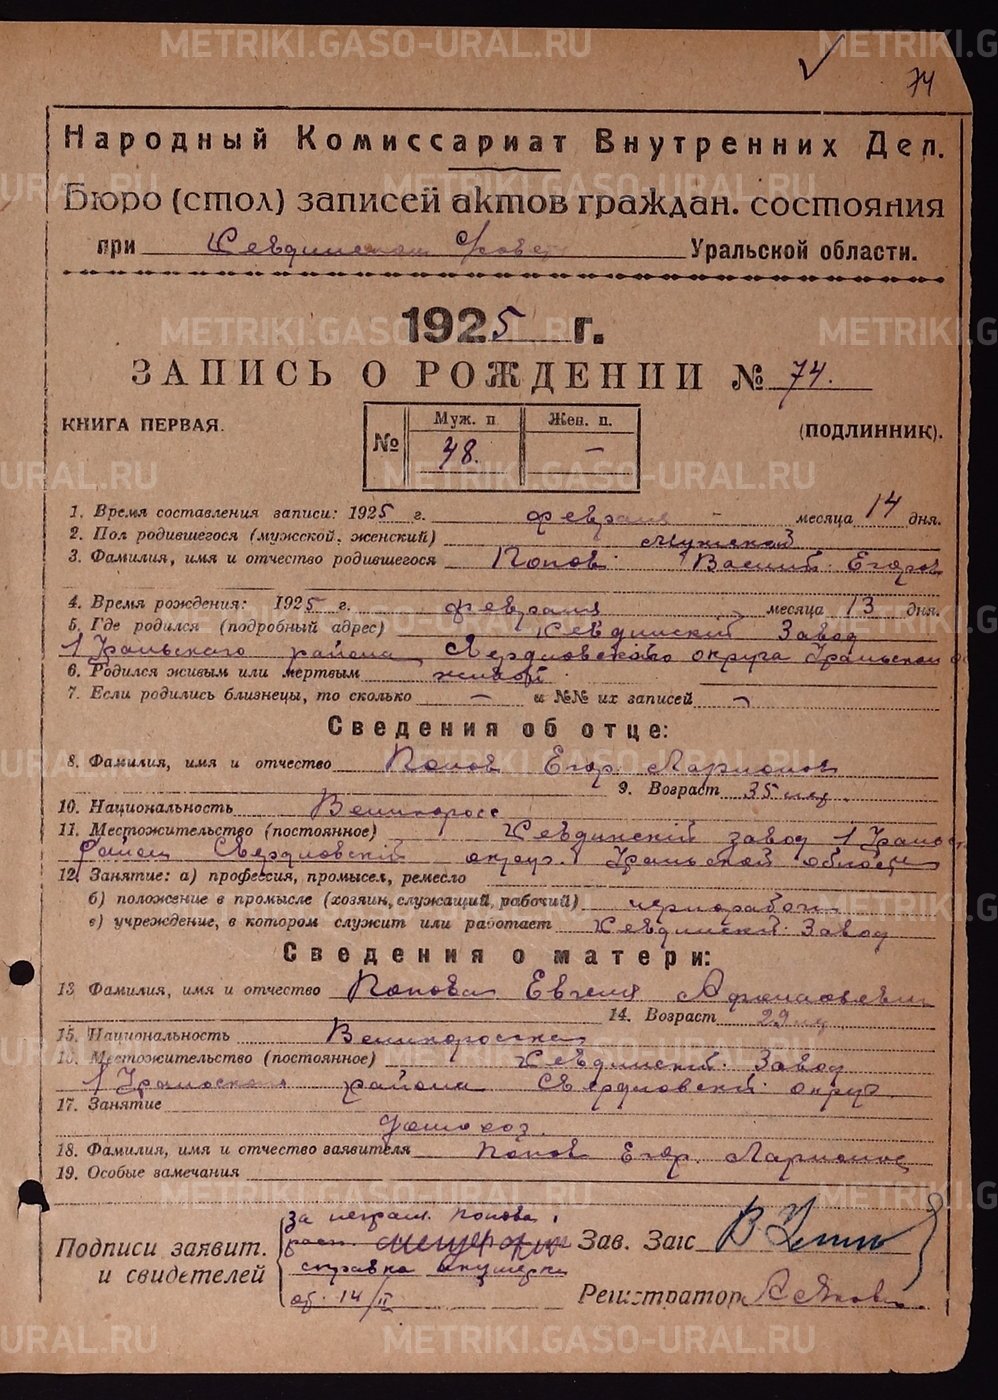 METRIKI.GASO-URAL.RU
74
Народный Комиссариат Внутренних Дел.
Бюро (стол) записей актов граждан. состояния
при Уральской области.
1925 г.
ЗАПИСЬ О РОЖДЕНИИ № 74.
КНИГА ПЕРВАЯ.
№ Муж. п. Жен. п.
48. —
(ПОДЛИННИК).
1. Время составления записи: 1925 г. февраля - месяца 14 дня.
2. Пол родившегося (мужской, женский) Мужской
3. Фамилия, имя и отчество родившегося Попов Василий Егоров
4. Время рождения: 1925 г. февраля месяца 13 дня.
5. Где родился (подробный адрес) Завод
1 Уральского района Свердловского округа Уральской
6. Родился живым или мертвым живой
7. Если родились близнецы, то сколько — и №№ их записей —
Сведения об отце:
8. Фамилия, имя и отчество Попов Егор Ларионов
9. Возраст 35 лет.
10. Национальность Великоросс
11. Местожительство (постоянное) завод 1 Уральск
район Свердловский округ Уральской области
12. Занятие: а) профессия, промысел, ремесло
б) положение в промысле (хозяин, служащий, рабочий) чернорабочий
в) учреждение, в котором служит или работает Завод
Сведения о матери:
13. Фамилия, имя и отчество Попова Евгения
14. Возраст 29 лет
15. Национальность Великоросска
16. Местожительство (постоянное) Завод
1 Уральского района Свердловский округ.
17. Занятие
домохоз.
18. Фамилия, имя и отчество заявителя Попов Егор Ларионов
19. Особые замечания
Подписи заявит.
и свидетелей
за неграм. Попова
справка акушерки
от 14/II
Зав. Загс
Регистратор